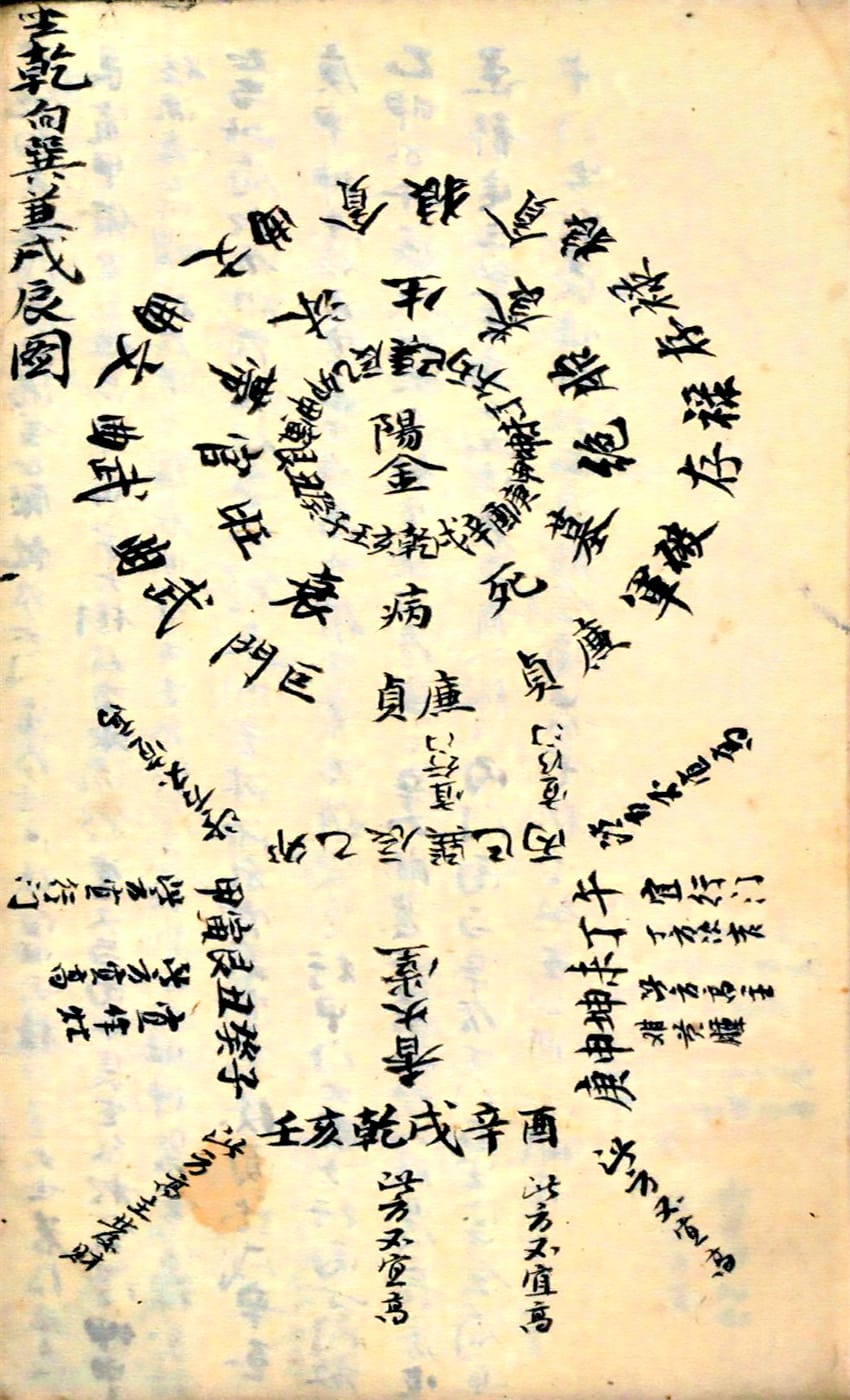 坐乾向巽兼戌辰圖
陽金
壬亥乾戌辛酉庚申坤未丁午丙巳巽辰乙卯甲寅艮丑癸子
生養胎絕墓死病衰旺官帶沐
貪狼
貪狼
祿存
祿存
破軍
廉貞
廉貞
巨門
武曲
武曲
文曲
宜行门
宜行门
卯乙辰巽巳丙
午丁未坤申庚
宜行门
丁方
此方高主
甲寅艮丑癸子
此方宜行门
此方宜高
宜作灶
香火堂
壬亥乾戌辛酉
此方不宜高
此方不宜高
此方不宜高
此方高主